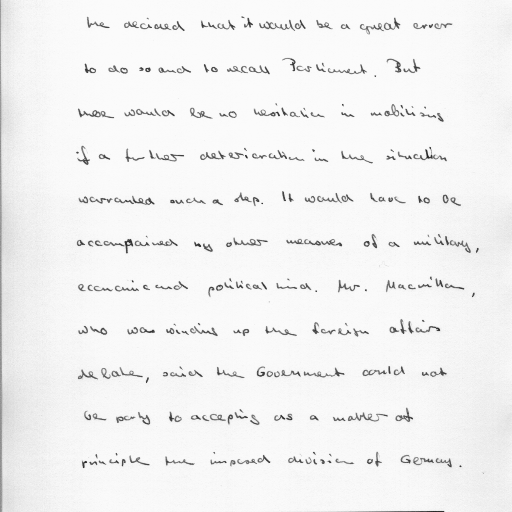 He decided that it would be a great error
to do so and to recall Parliament. But
there would be no hesitation in mobilising
if a further deterioration in the situation
warranted such a step. It would have to be
accompained by other measures of a military,
economic and political kind. Mr. Macmillan,
who was winding up the foreign affairs
debate, said the Government could not
be party to accepting as a matter of
principle the imposed division of Germany.